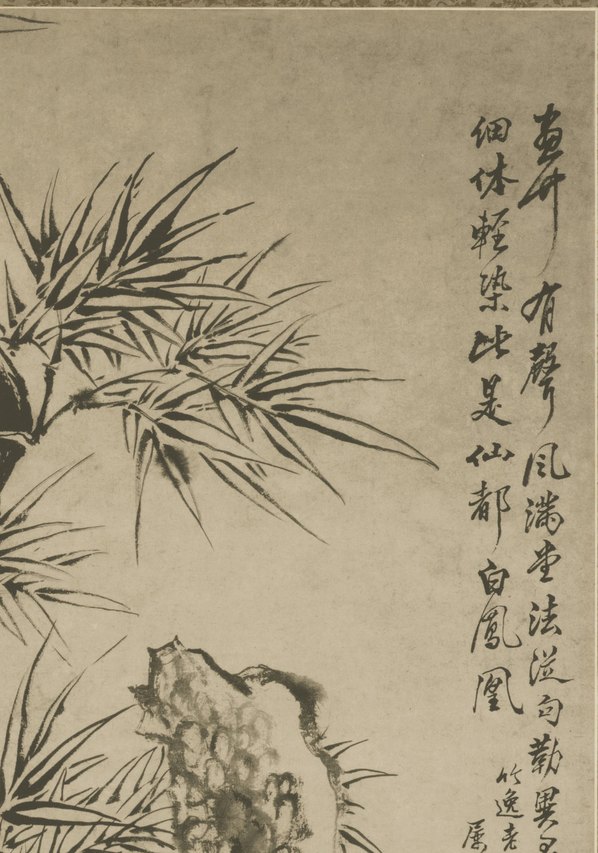 畫竹有聲風滿堂法從勾勒異
細体輕染此是仙都白鳳凰
竹逸老